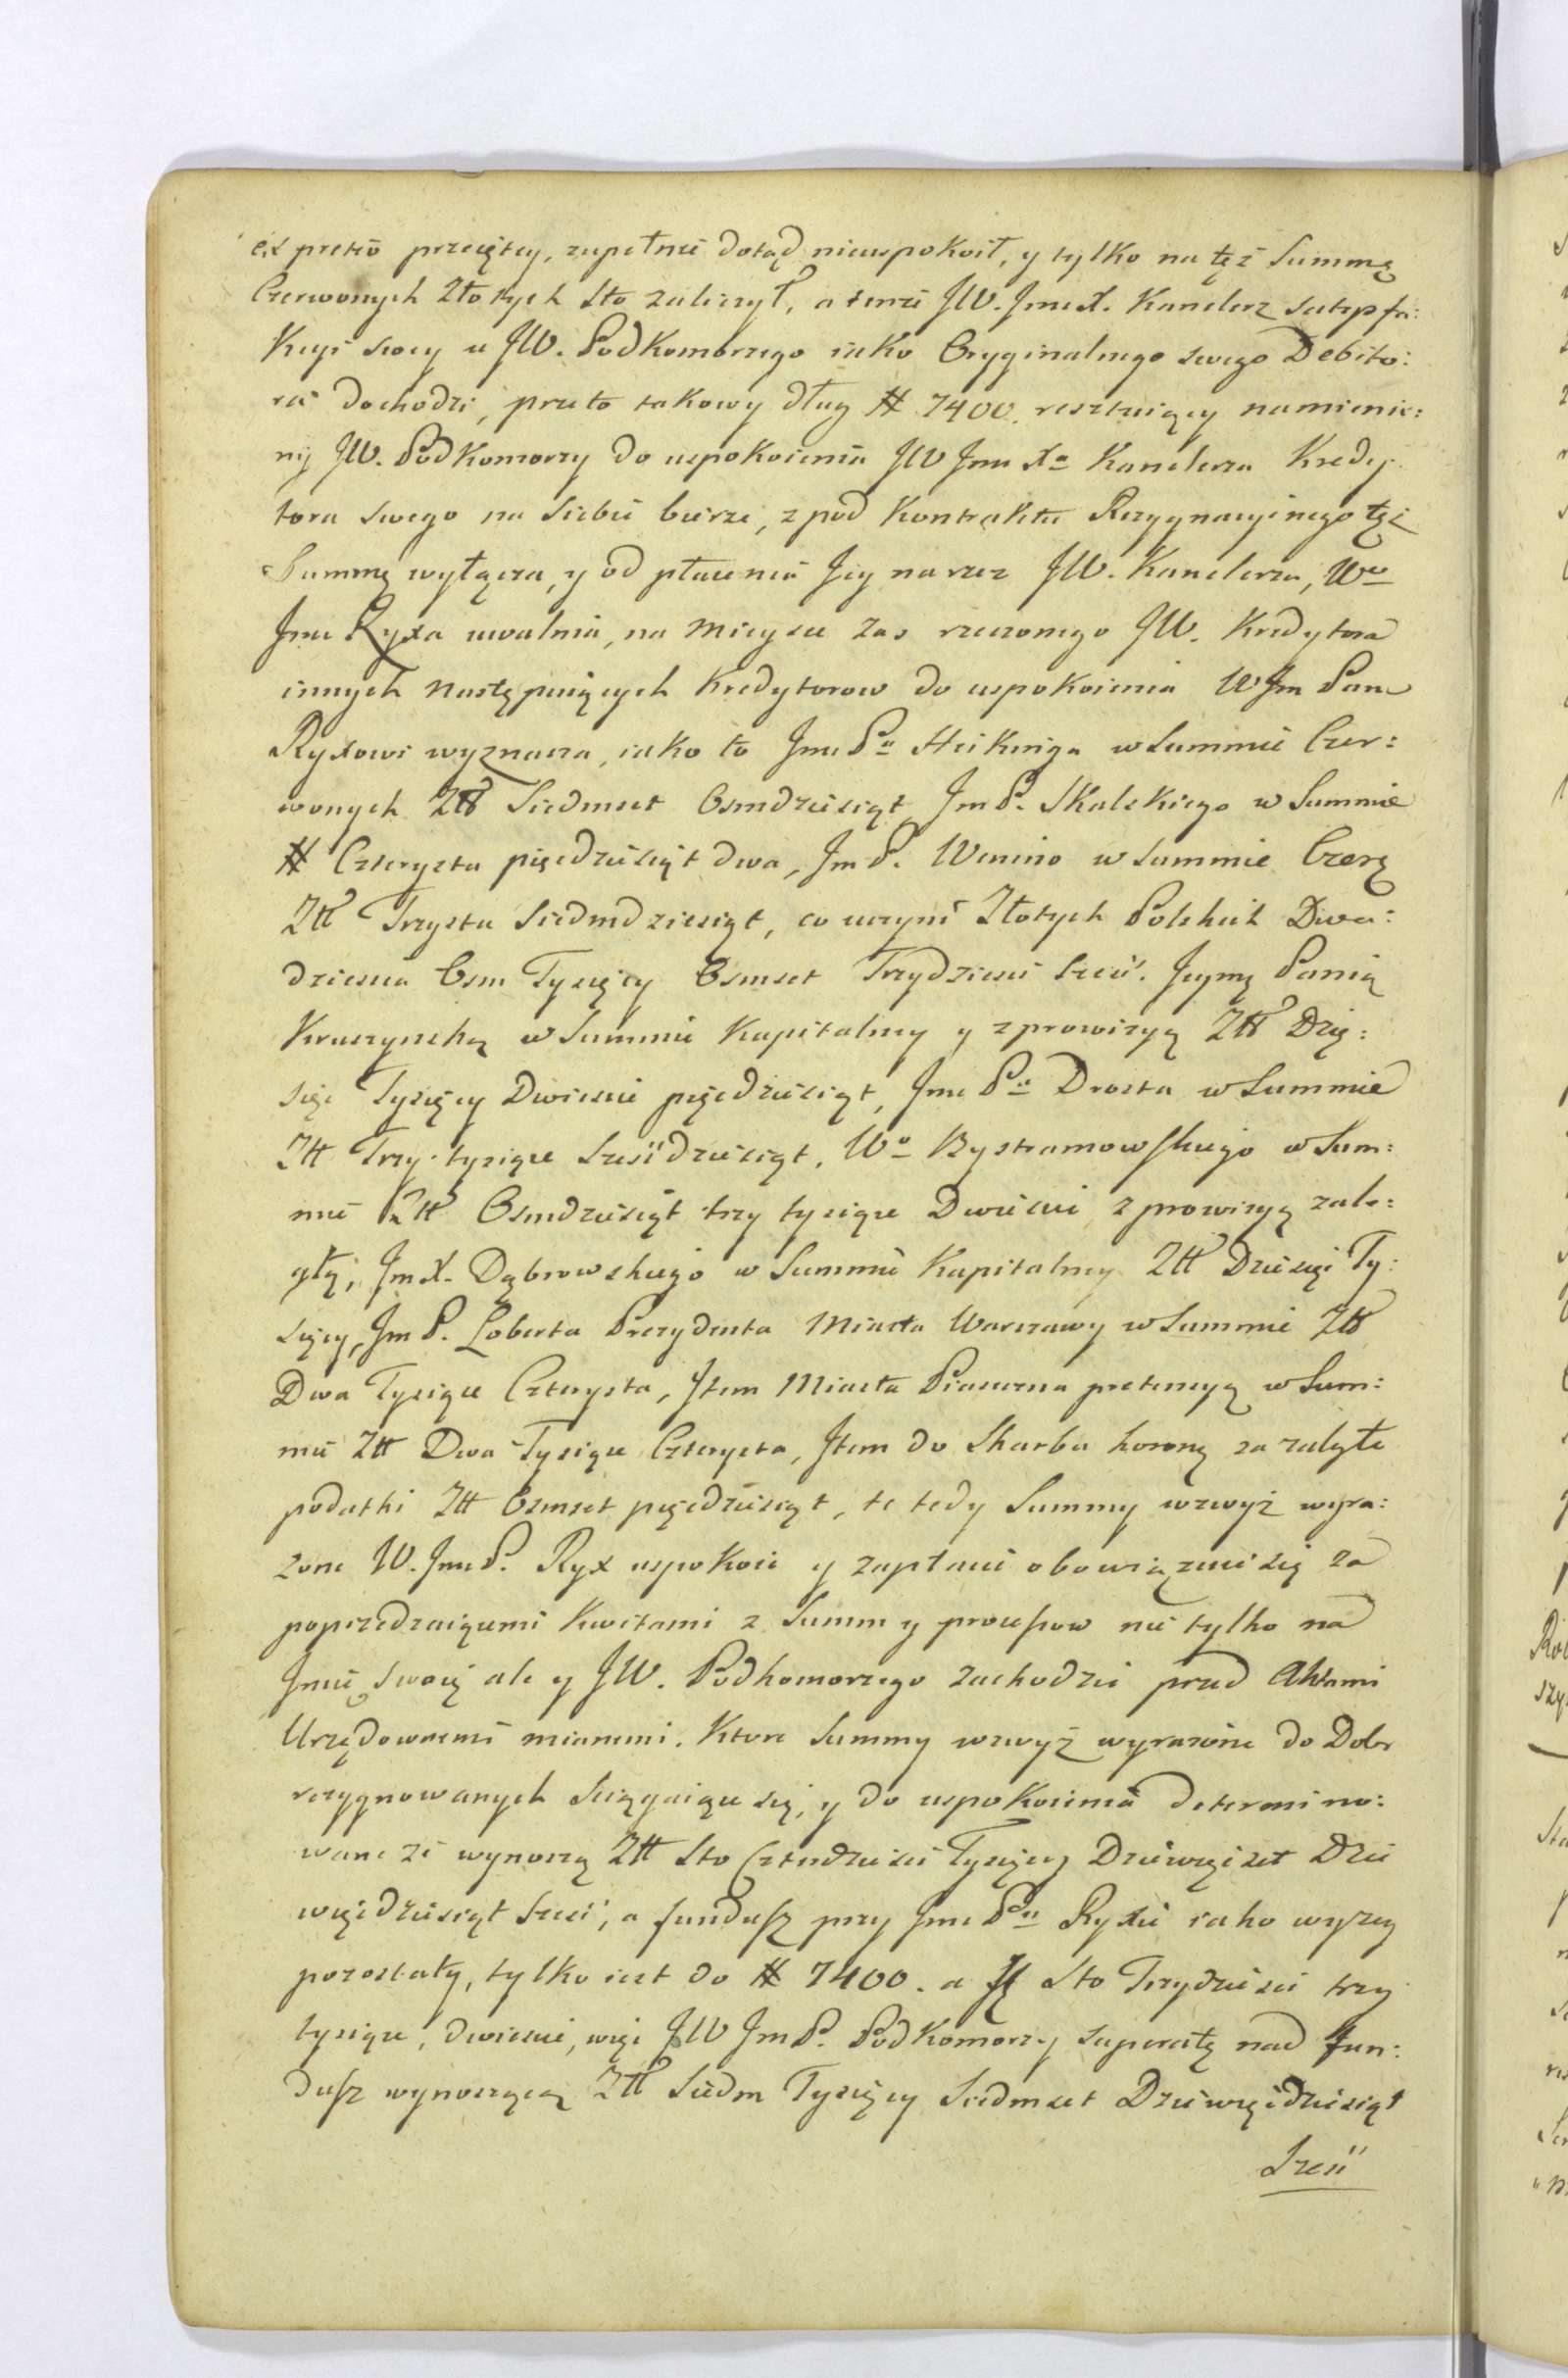 ex pretio przeiętey, zupełnie dotąd nieuspokoił, y tylko na tęż Summę
Czerwonych Złotych Sto zaliczył, a tenże JW. Jmci X. Kanclerz satysfa:
kcyi swey u JW. Podkomorzego iako Oryginalnego swego Debito:
ra dochodzi, przeto takowy dług # 7400. resztuiący namienio:
ny JW. Podkomorzy do uspokoienia JW Jmci Xa Kanclerza Kredy
tora swego na siebie bierze, z pod Kontraktu Rezygnacyinego tęż
Summę wyłącza, y od płacenia Jey na rzecz JW. Kanclerza, Wo
Jmci Ryxa uwalnia, na mieysce zas rzeczonego JW. Kredytora
innych następuiących Kredytorow do uspokoienia WJm Panu
Ryxowi wyznacza, iako to Jmci Pa w Summie Czer:
wonych Złł Siedmset Osmdziesiąt, Jm P. Skalskiego w Summie
# Czterysta pięćdziesiąt dwa, Jm P. Wenino w Summie Czerw
Złł Trzysta Siedmdziesiąt, co uczyni Złotych Polskich Dwa:
dziescia Osm Tysięcy Osmset Trzydziesci szesc. Jeymę Panią
Kruszynską w Summie Kapitalney y z prowizyą Złł Dzie:
sięc Tysięcy Dwiescie pięćdziesiąt, Jmci Pa Drosta w Summie
Złł Trzy tysiące Szesćdziesiąt, Wo Bystramowskiego w Sum:
mie Złł Osmdziesiąt trzy tysiące Dwiescie z prowizyą zale:
głą, Jm X. Dąbrowskiego w Summie Kapitalney Złł Dziesięć Ty:
sięcy, Jm P. Loberta Prezydenta Miasta Warszawy w Summie Złł
Dwa Tysiące Czterysta, Item Miasta Piaseczna pretensyą w Sum:
mie Złł Dwa Tysiące Czterysta, Item do Skarbu koronę za zaległe
podatki Złł Osmset pięćdziesiąt, te tedy Summy wzwyż wyra:
zone W. Jmci P. Ryx uspokoić y zapłacić obowiązuie się za
poprzedzaiącemi Kwitami z Summ y processow nie tylko na
Jmię swoię ale y JW. Podkomorzego zachodzić przed Aktami
Urzędownemi mianemi. Ktore Summy wzwyż wyrazone do Dobr
rezygnowanych sciągaiące się, y do uspokoienia determino:
wane że wynoszą Złł Sto Czterdziesci Tysięcy Dziewięcset Dzie
więćdziesiąt szesć, a fundusz przy Jmci Pu Ryxie iako wyzey
pozostały, tylko iest do # 7400. a Zł Sto Trzydziesci trzy
tysiące, dwiescie, więc JW Jm P. Podkomorzy superatę nad fun:
dusz wynoszącą Złł Siedm Tysięcy Siedmset Dziewięćdziesiąt
Szesć